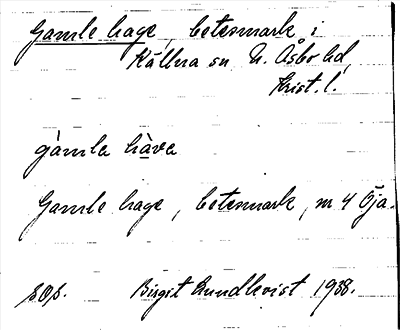 Gamle hage, betesmark i
Källna sn N. Åsbo hd,
Krist. l.
gàmla hàva
Gamle hage, betesmark, nr 4 Öja.
s.O.s. Birgit Lundkvist 1938.